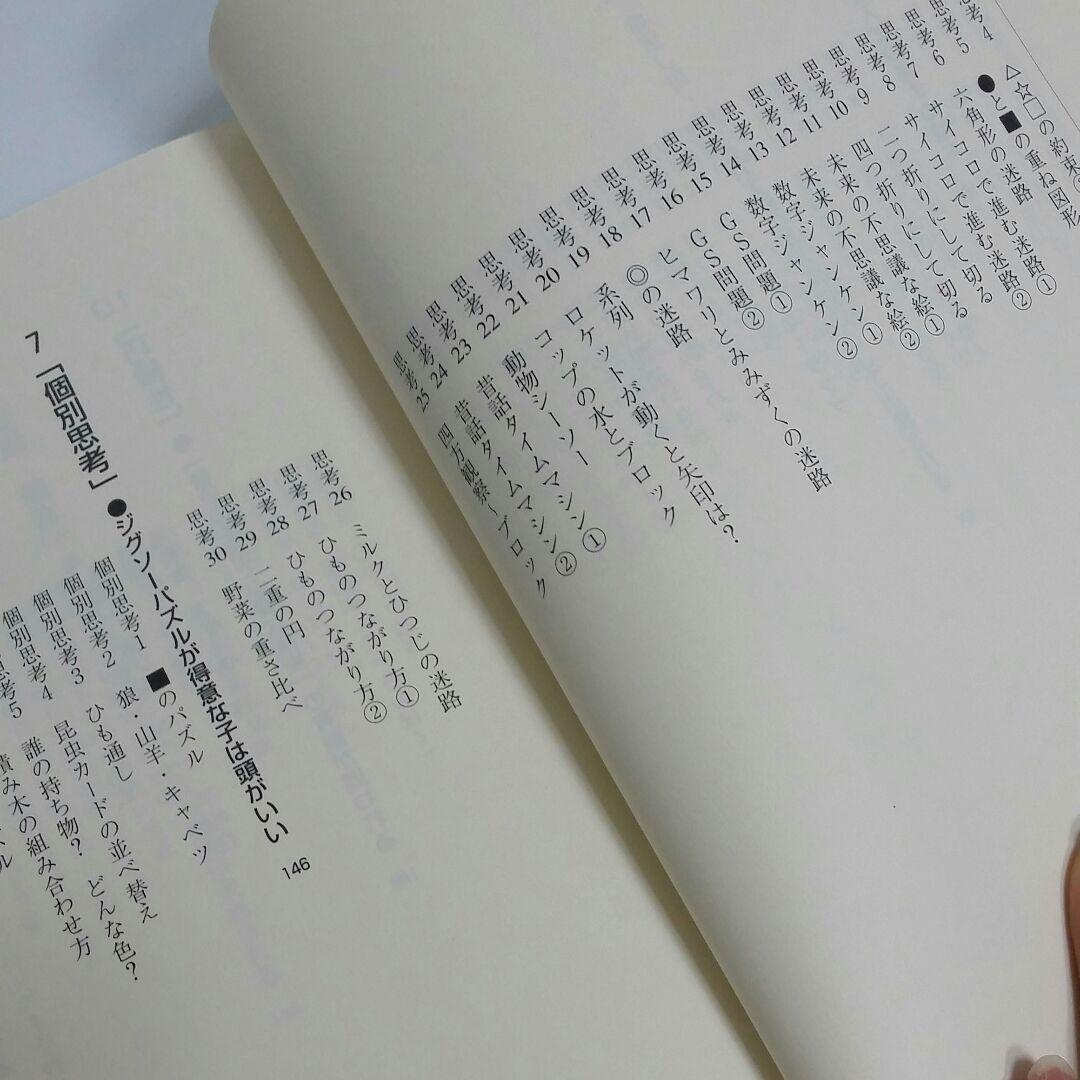 思考4 △☆□の約束
思考5 ●と■の重ね図形
思考6 六角形の迷路
思考7 サイコロで進む迷路①
思考8 サイコロで進む迷路②
思考9 二つ折りにして切る
思考10 四つ折りにして切る
思考11 未来の不思議な絵①
思考12 未来の不思議な絵②
思考13 数字ジャンケン①
思考14 数字ジャンケン②
思考15 GS問題①
思考16 GS問題②
思考17 ヒマワリとみみずくの迷路
思考18 ◎の迷路
思考19 系列
思考20 ロケットが動くと矢印は?
思考21 コップの水とブロック
思考22 動物シーソー
思考23 昔話タイムマシン①
思考24 昔話タイムマシン②
思考25 四方観察〜ブロック
思考26 ミルクとひつじの迷路
思考27 ひものつながり方①
思考28 ひものつながり方②
思考29 二重の円
思考30 野菜の重さ比べ
7 「個別思考」 ●ジグソーパズルが得意な子は頭がいい 146
個別思考1 ■のパズル
個別思考2 狼・山羊・キャベツ
個別思考3 ひも通し
個別思考4 昆虫カードの並べ替え
個別思考5 誰の持ち物? どんな色?
積み木の組み合わせ方